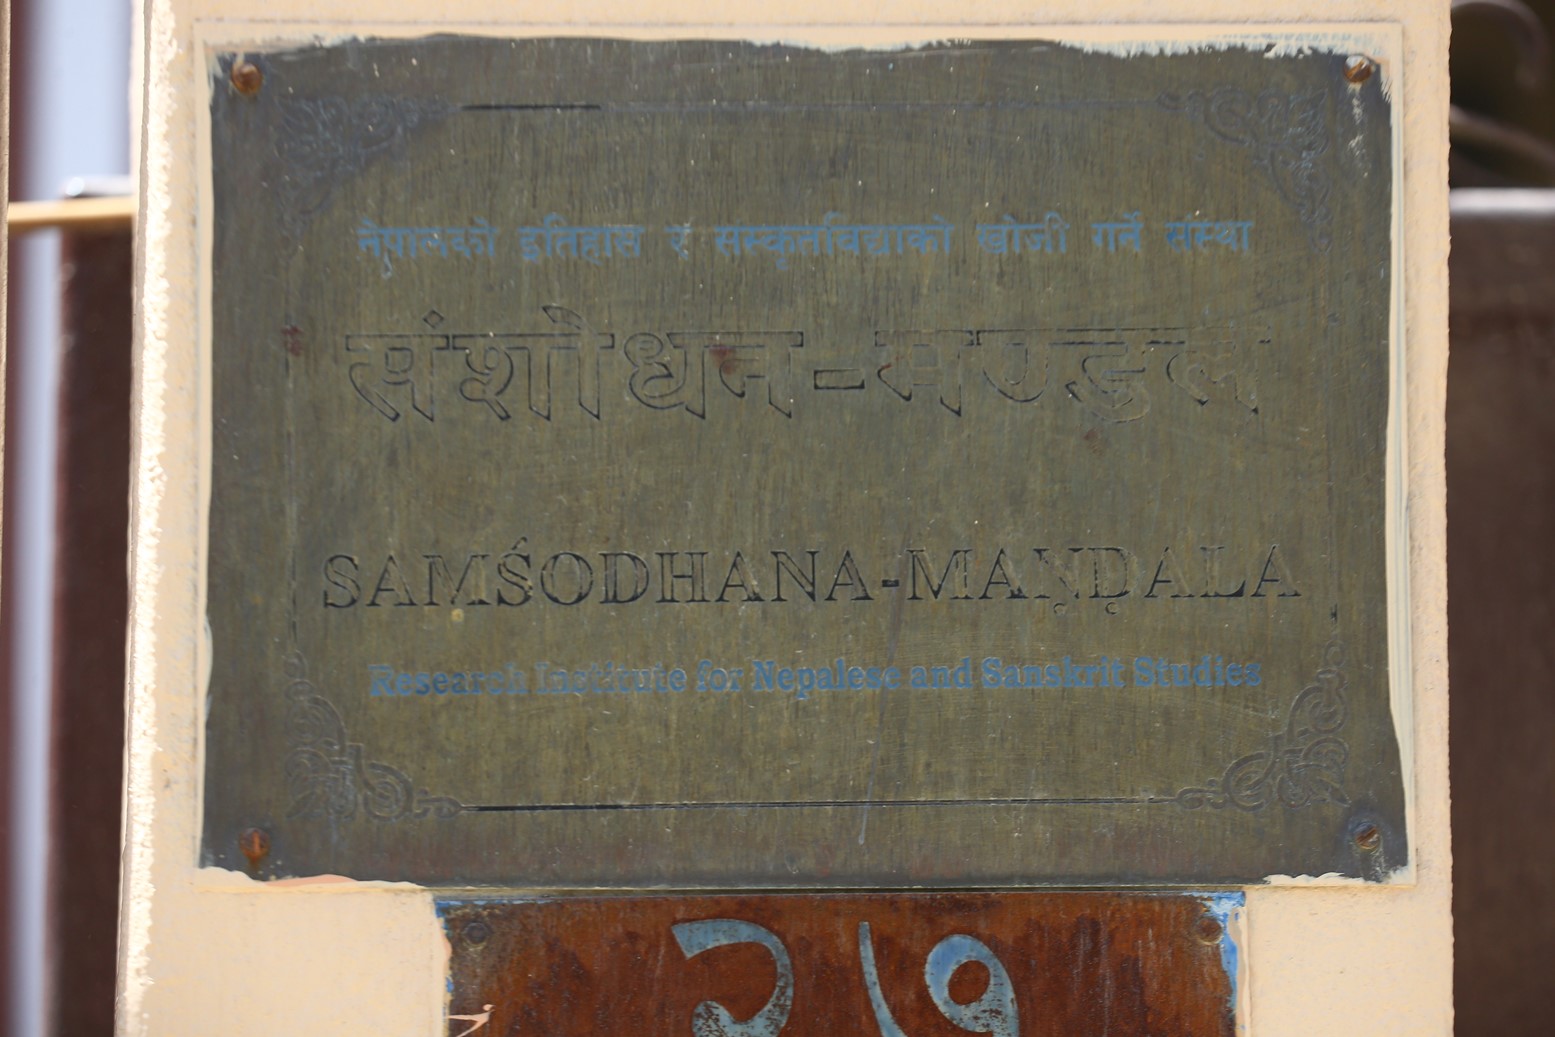 नेपालको इतिहास र संस्कृतविद्याको खोजी गर्ने संस्था
संशोधन-मण्डल
SAMŚODHANA-MAṆḌALA
Research Institute for Nepalese and Sanskrit Studies